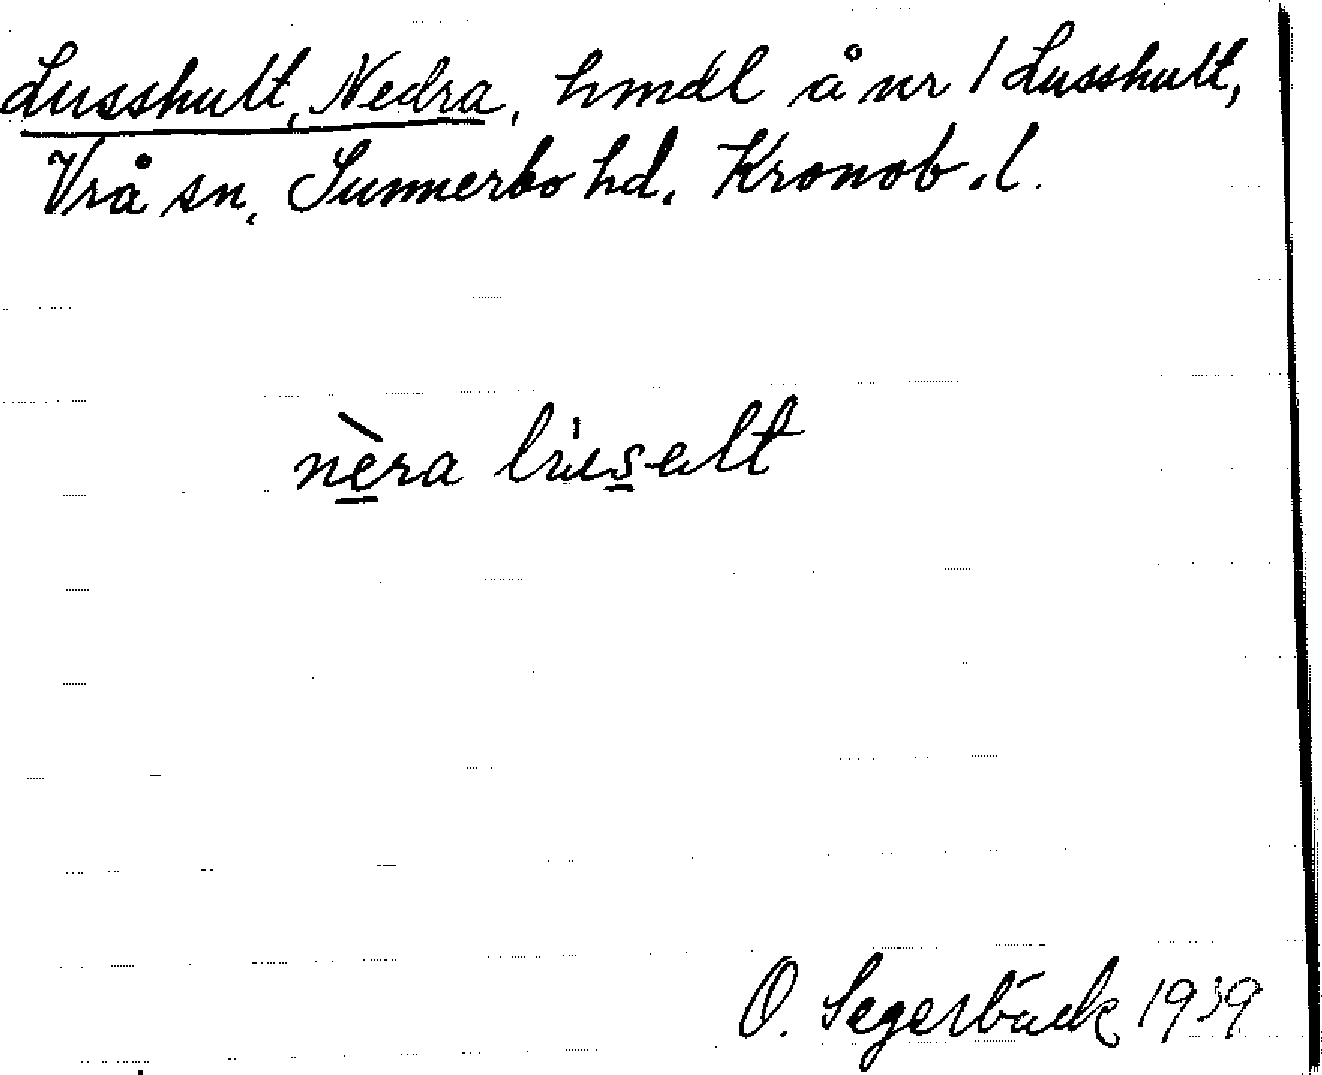 Lusshult, Nedra, hmdl å nr 1 Lusshult,
Vrå sn, Sunnerbo hd. Kronob. l.
nèra lusselt
O. Segerbäck 1939